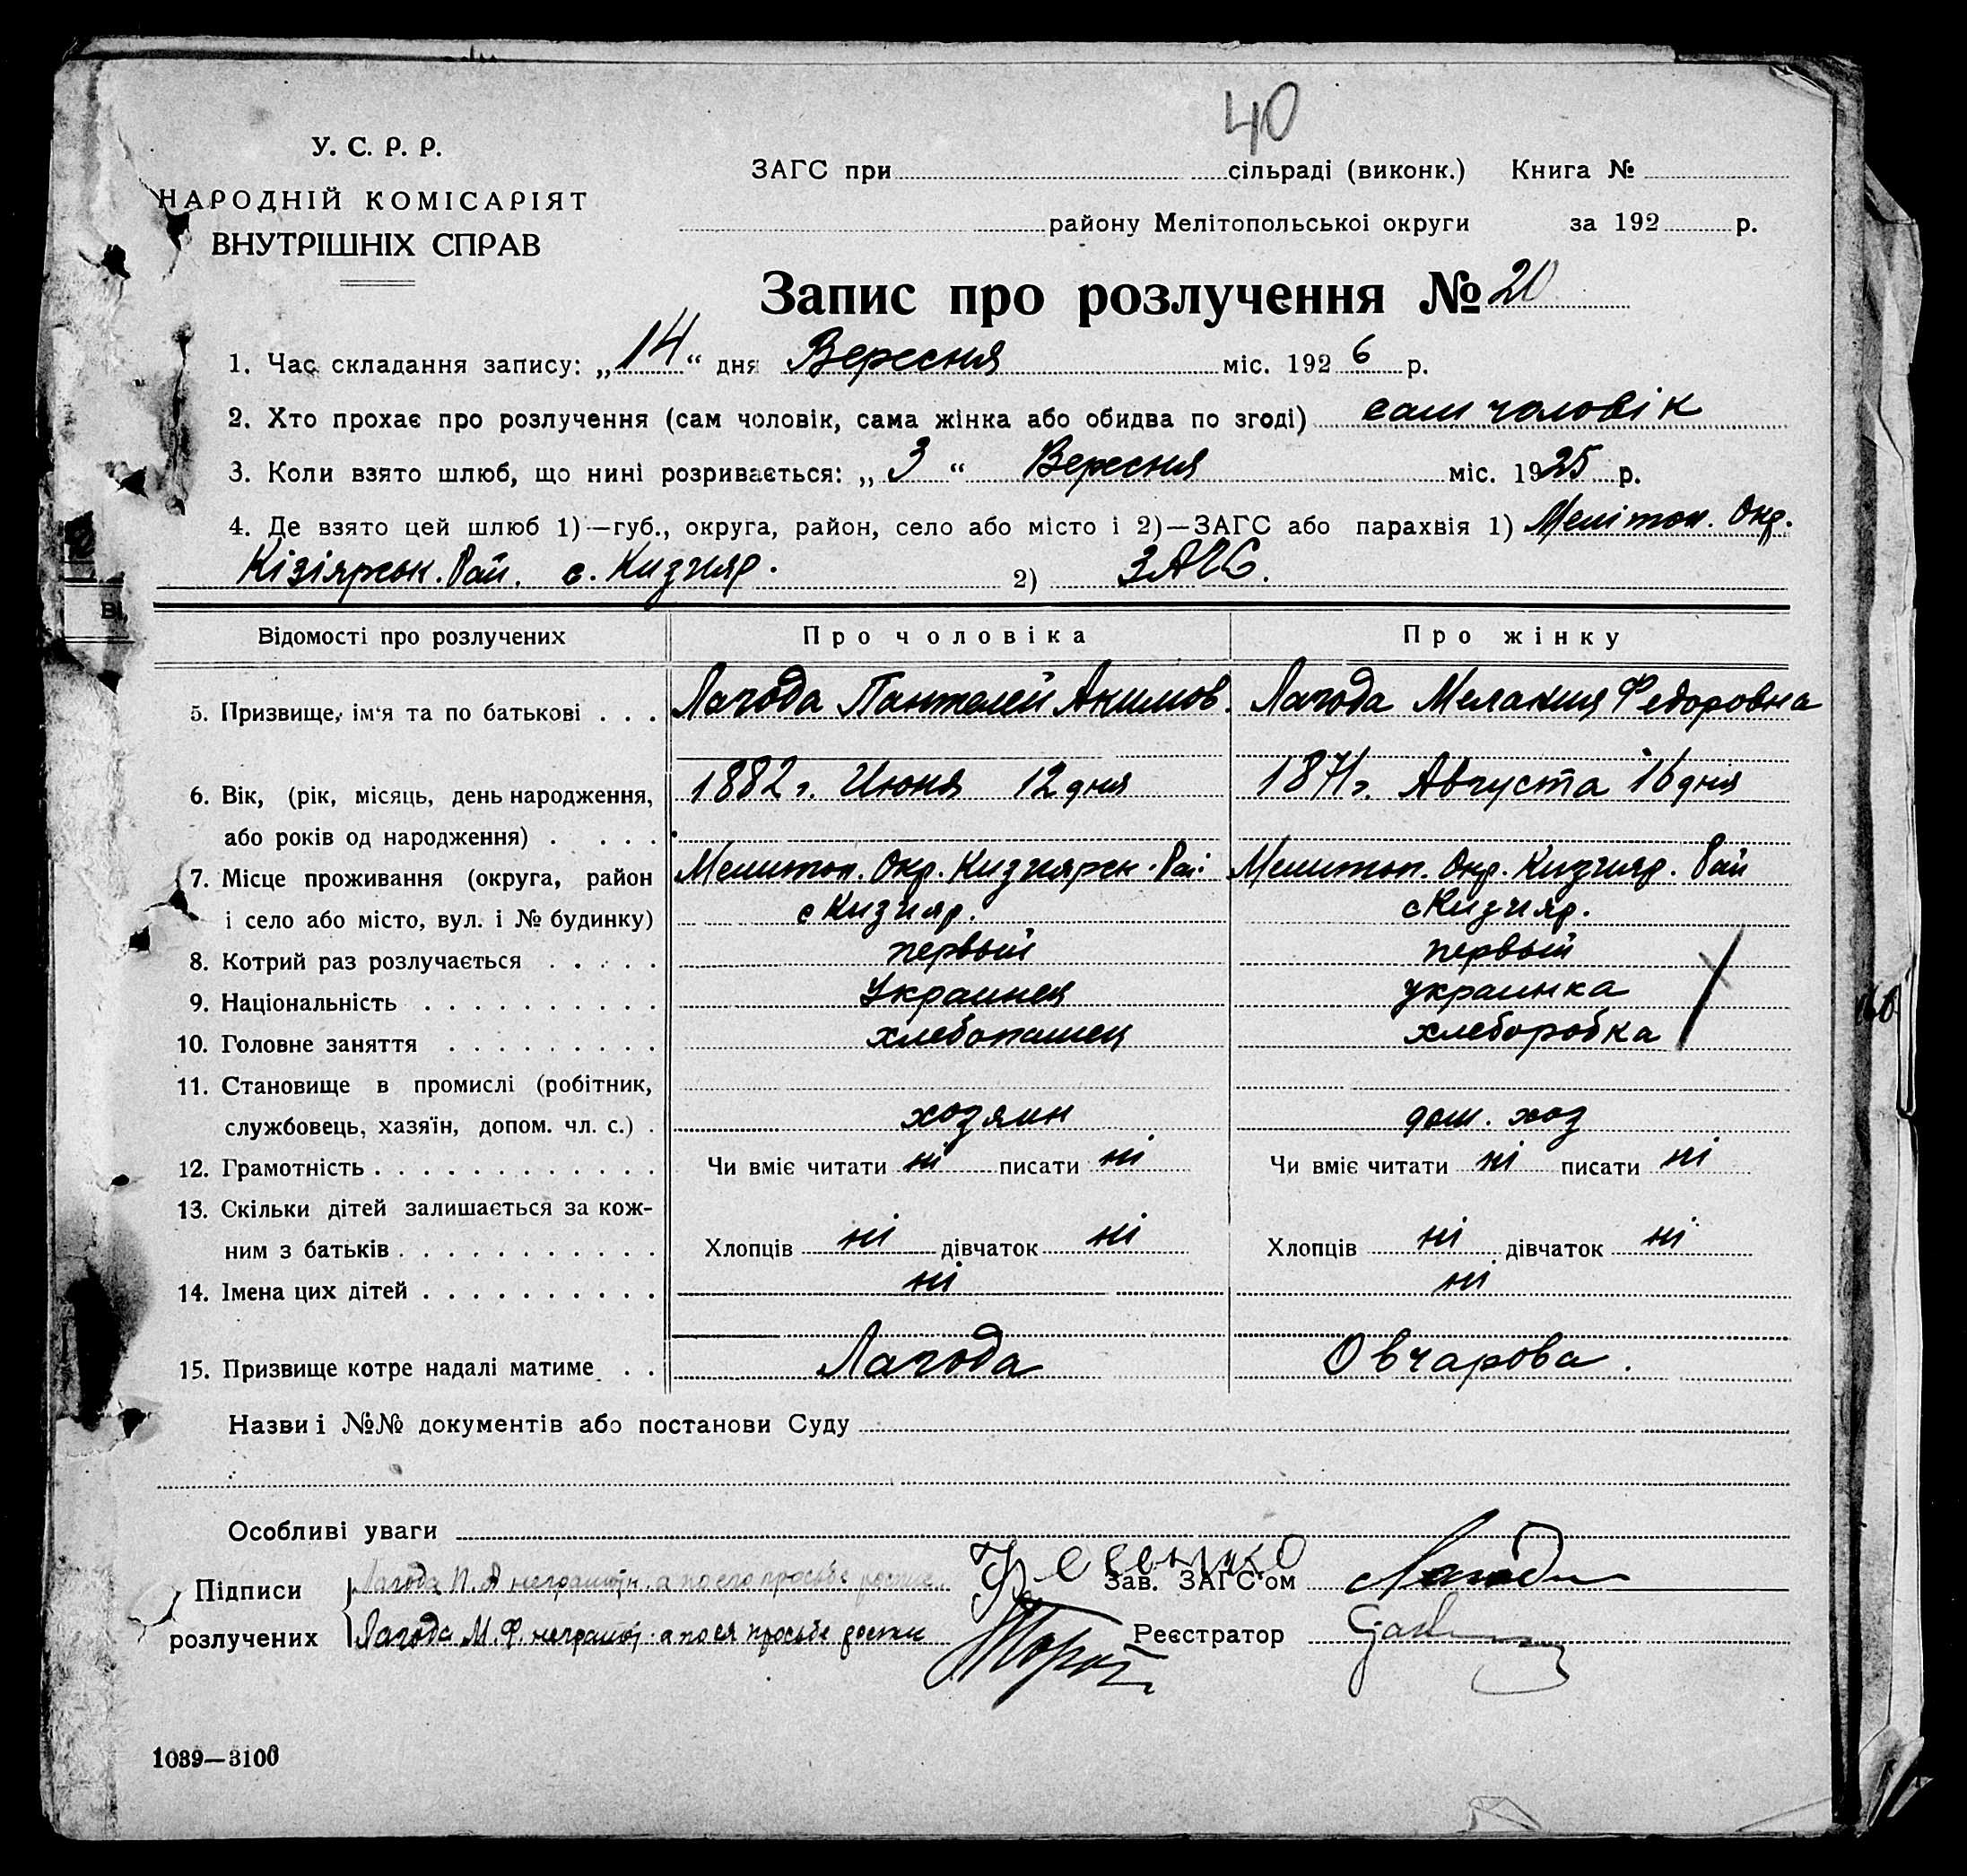 40
У. С. Р. Р.
НАРОДНІЙ КОМІСАРІЯТ
ВНУТРІШНІХ СПРАВ
ЗАГС при сільраді (виконк.) Книга №
району Мелітопольської округи за 192 р.
Запис про розлучення № 20
1. Час складання запису: „14“ дня Вересня міс. 1926 р.
2. Хто прохає про розлучення (сам чоловік, сама жінка або обидва по згоді) сам чоловік
3. Коли взято шлюб, що нині розривається: „3“ Вересня міс. 1925 р.
4. Де взято цей шлюб 1)—губ., округа, район, село або місто і 2)—ЗАГС або парахвія 1) Меліт оп. Окр.
Кізіярськ. Рай. с. Кизияр. 2) ЗАГС.
Відомості про розлучених Про чоловіка Про жінку
5. Призвище, ім‘я та по батькові . . . Лагода Пантелей Акимов. Лагода Мелания Федоровна
6. Вік, (рік, місяць, день народження, 1882 г. Июня 12 дня 1871 г. Августа 16 дня
або років од народження) . . . . .
7. Місце проживання (округа, район Мелитоп. Окр. Кизиярск. Рай. Мелитоп. Окр. Кизияр. Рай
і село або місто, вул. і № будинку) с Кизияр. с Кизияр.
8. Котрий раз розлучається . . . . . первый первый
9. Національність . . . . . . . . . . Украинец украинка
10. Головне заняття . . . . . . . . . хлебопашец хлеборобка
11. Становище в промислі (робітник,
службовець, хазяїн, допом. чл. с.) . хозяин дом. хоз
12. Грамотність . . . . . . . . . . . . Чи вміє читати ні писати ні Чи вміє читати ні писати ні
13. Скільки дітей залишається за кож-
ним з батьків . . . . . . . . . . . Хлопців ні дівчаток ні Хлопців ні дівчаток ні
14. Імена цих дітей . . . . . . . . . . ні ні
15. Призвище котре надалі матиме . . Лагода Овчарова.
Назви і №№ документів або постанови Суду
Особливі уваги
Підписи Лагода П. А неграмотн. а по его просьбе Зав. ЗАГС‘ом
розлучених Лагода М. Ф. неграмот. а по ея просьбе Реєстратор
1039—3100